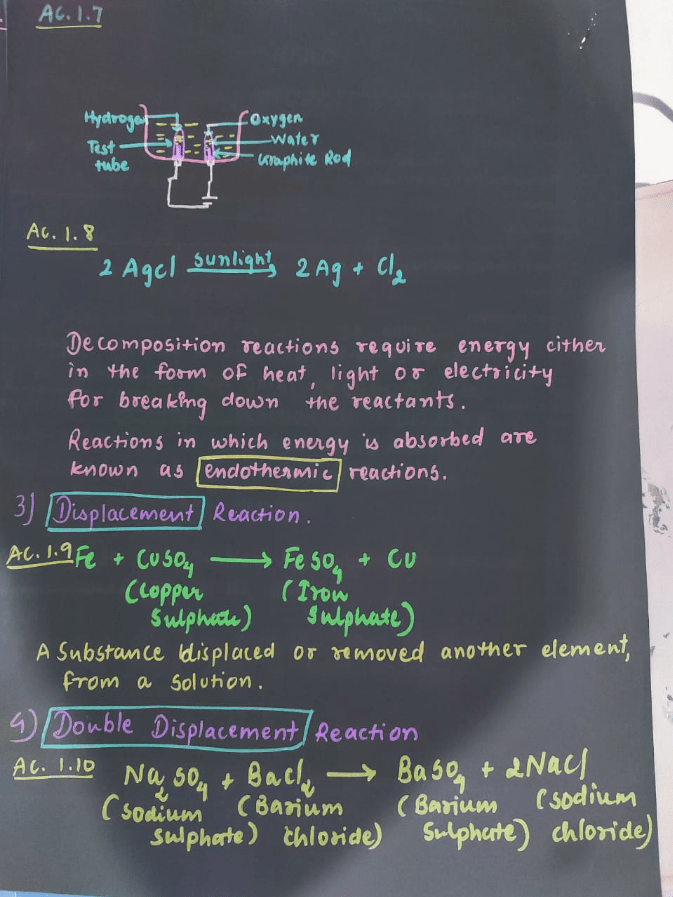 AC. 1.7
Hydrogen
Oxygen
Test tube
Water
Graphite Rod
AC. 1.8
2 Agcl sunlight 2 Ag + Cl₂
Decomposition reactions require energy either
in the form of heat, light or electricity
for breaking down the reactants.
Reactions in which energy is absorbed are
known as endothermic reactions.
3) Displacement Reaction.
AC. 1.9 Fe + CuSO₄ ⟶ FeSO₄ + Cu
(Copper (Iron
Sulphate) Sulphate)
A Substance displaced or removed another element,
from a solution.
4) Double Displacement Reaction
AC. 1.10 Na₂SO₄ + Bacl₂ ⟶ BaSO₄ + 2NaCl
(Sodium (Barium (Barium (sodium
sulphate) chloride) Sulphate) chloride)